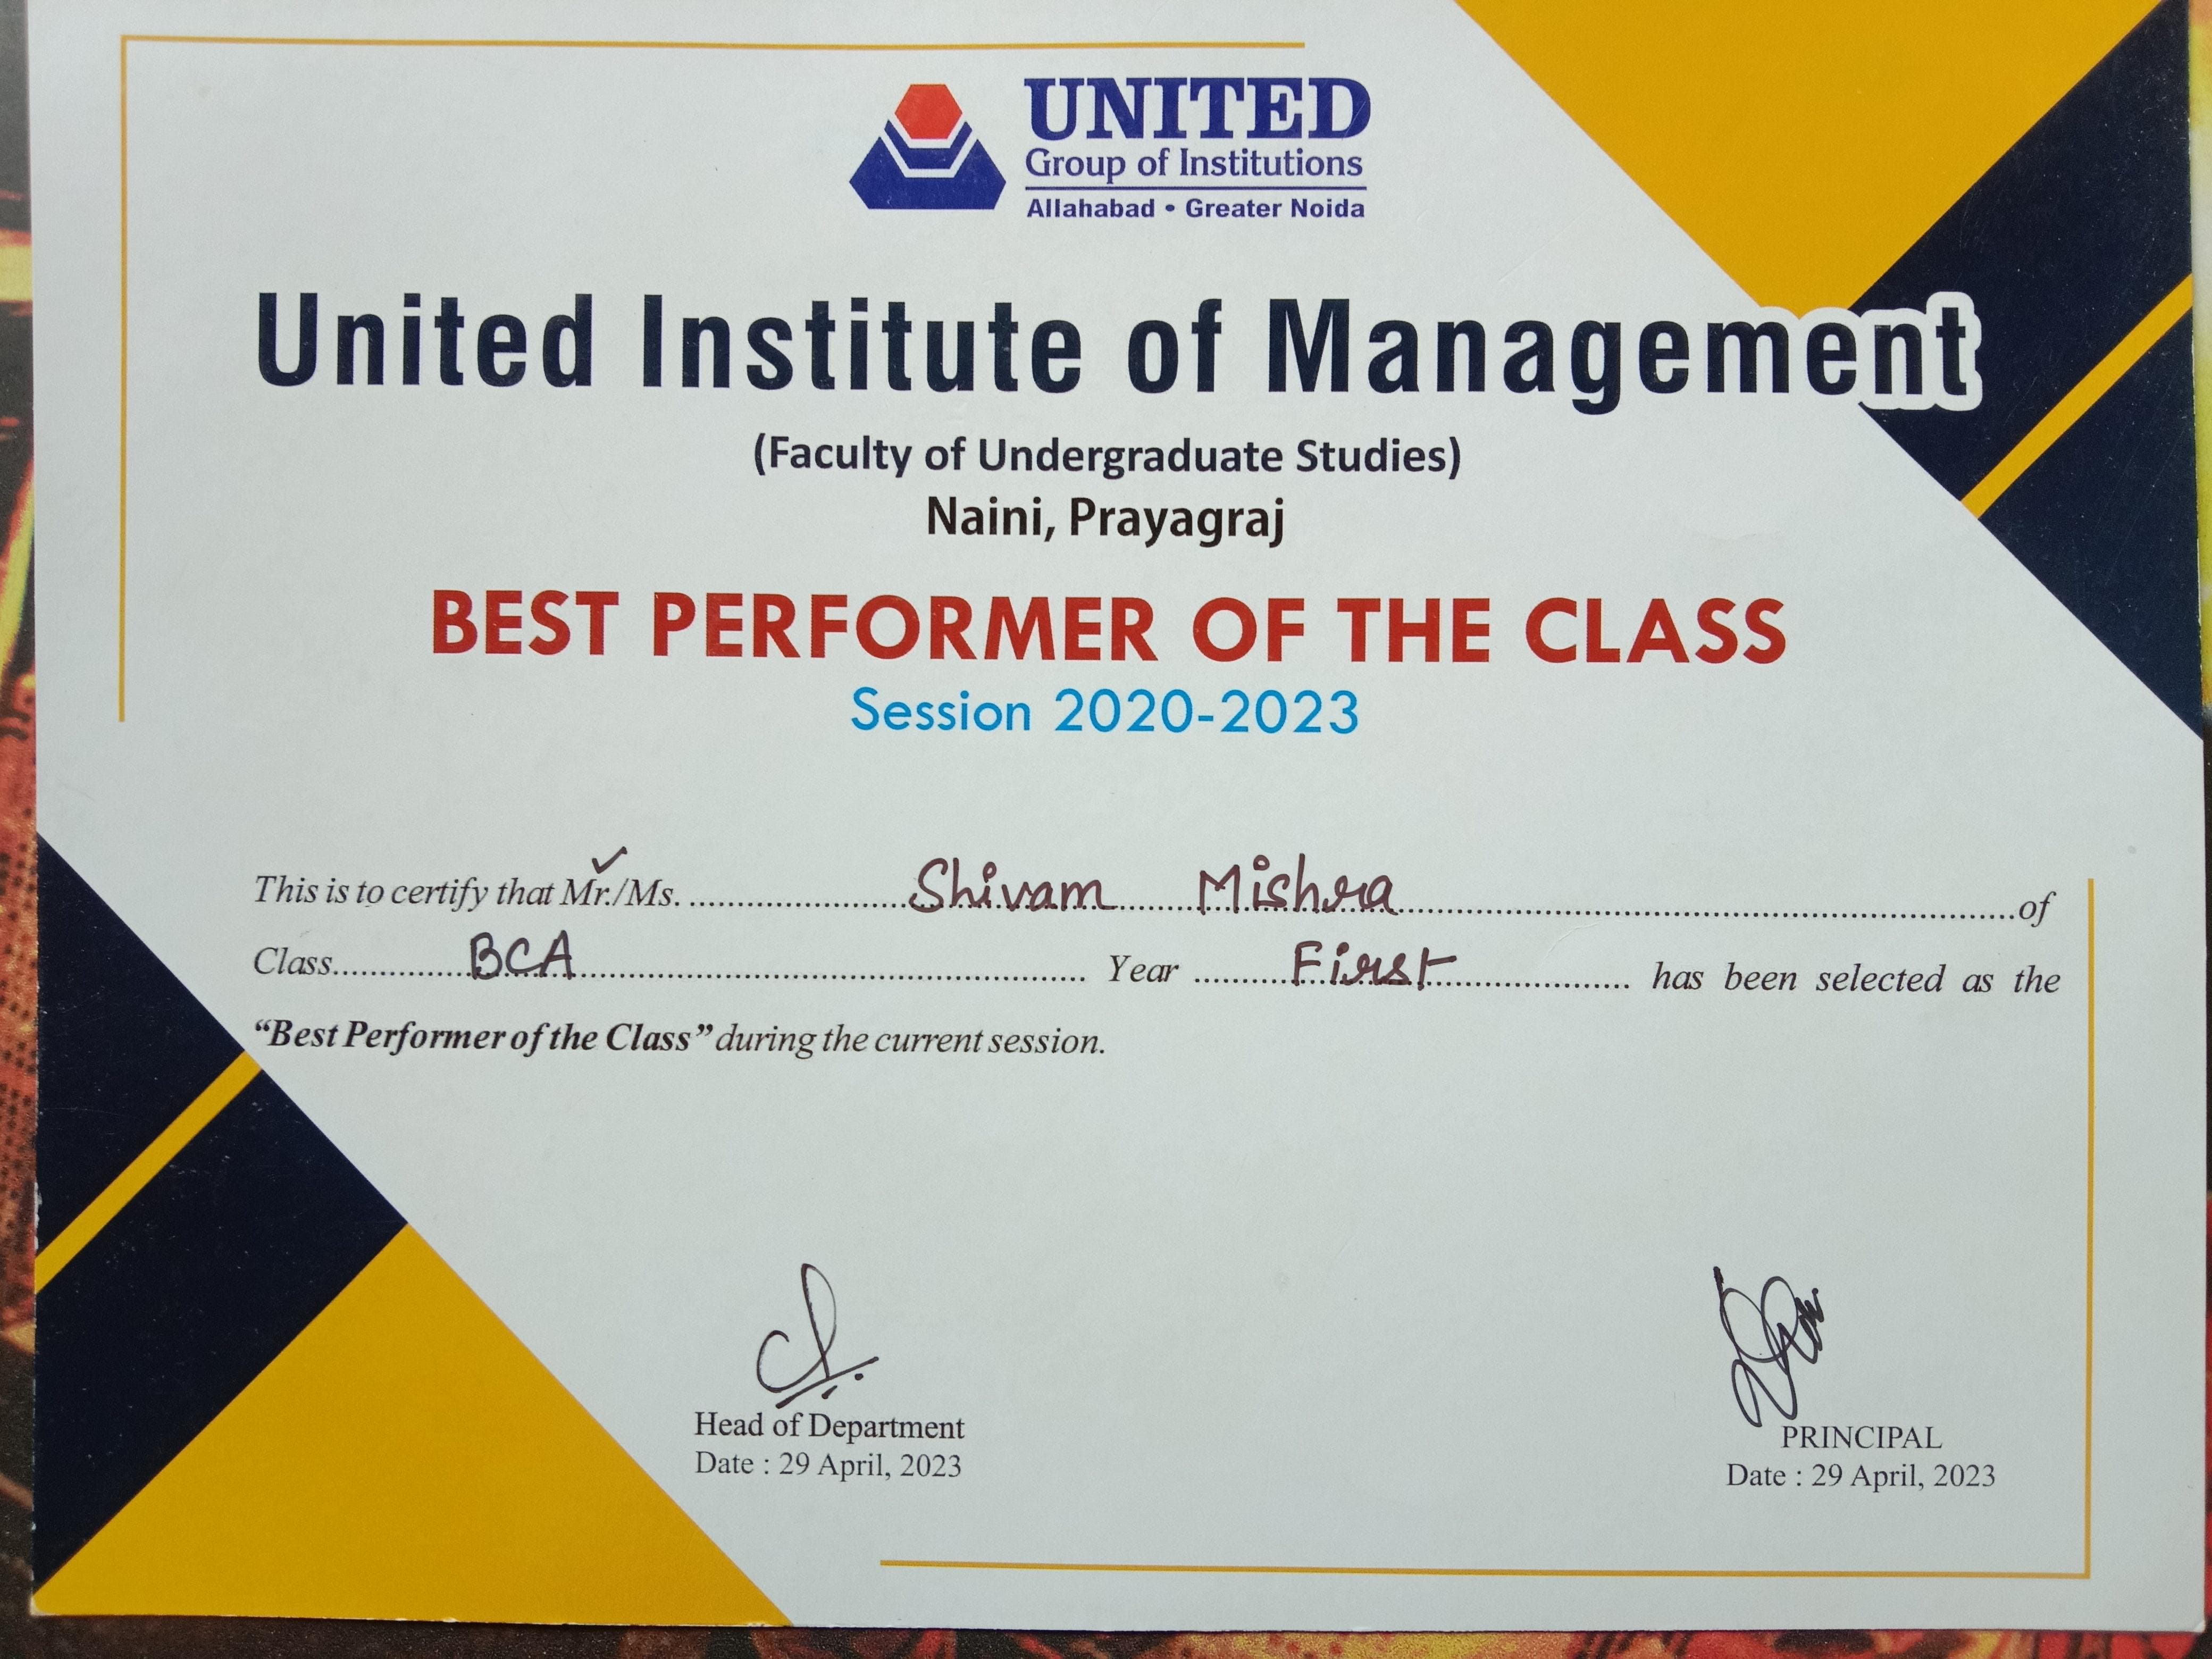 UNITED
Group of Institutions
Allahabad • Greater Noida
United Institute of Management
(Faculty of Undergraduate Studies)
Naini, Prayagraj
BEST PERFORMER OF THE CLASS
Session 2020-2023
This is to certify that Mr./Ms. Shivam Mishra of
Class BCA Year First has been selected as the
“Best Performer of the Class” during the current session.
Head of Department
Date : 29 April, 2023
PRINCIPAL
Date : 29 April, 2023